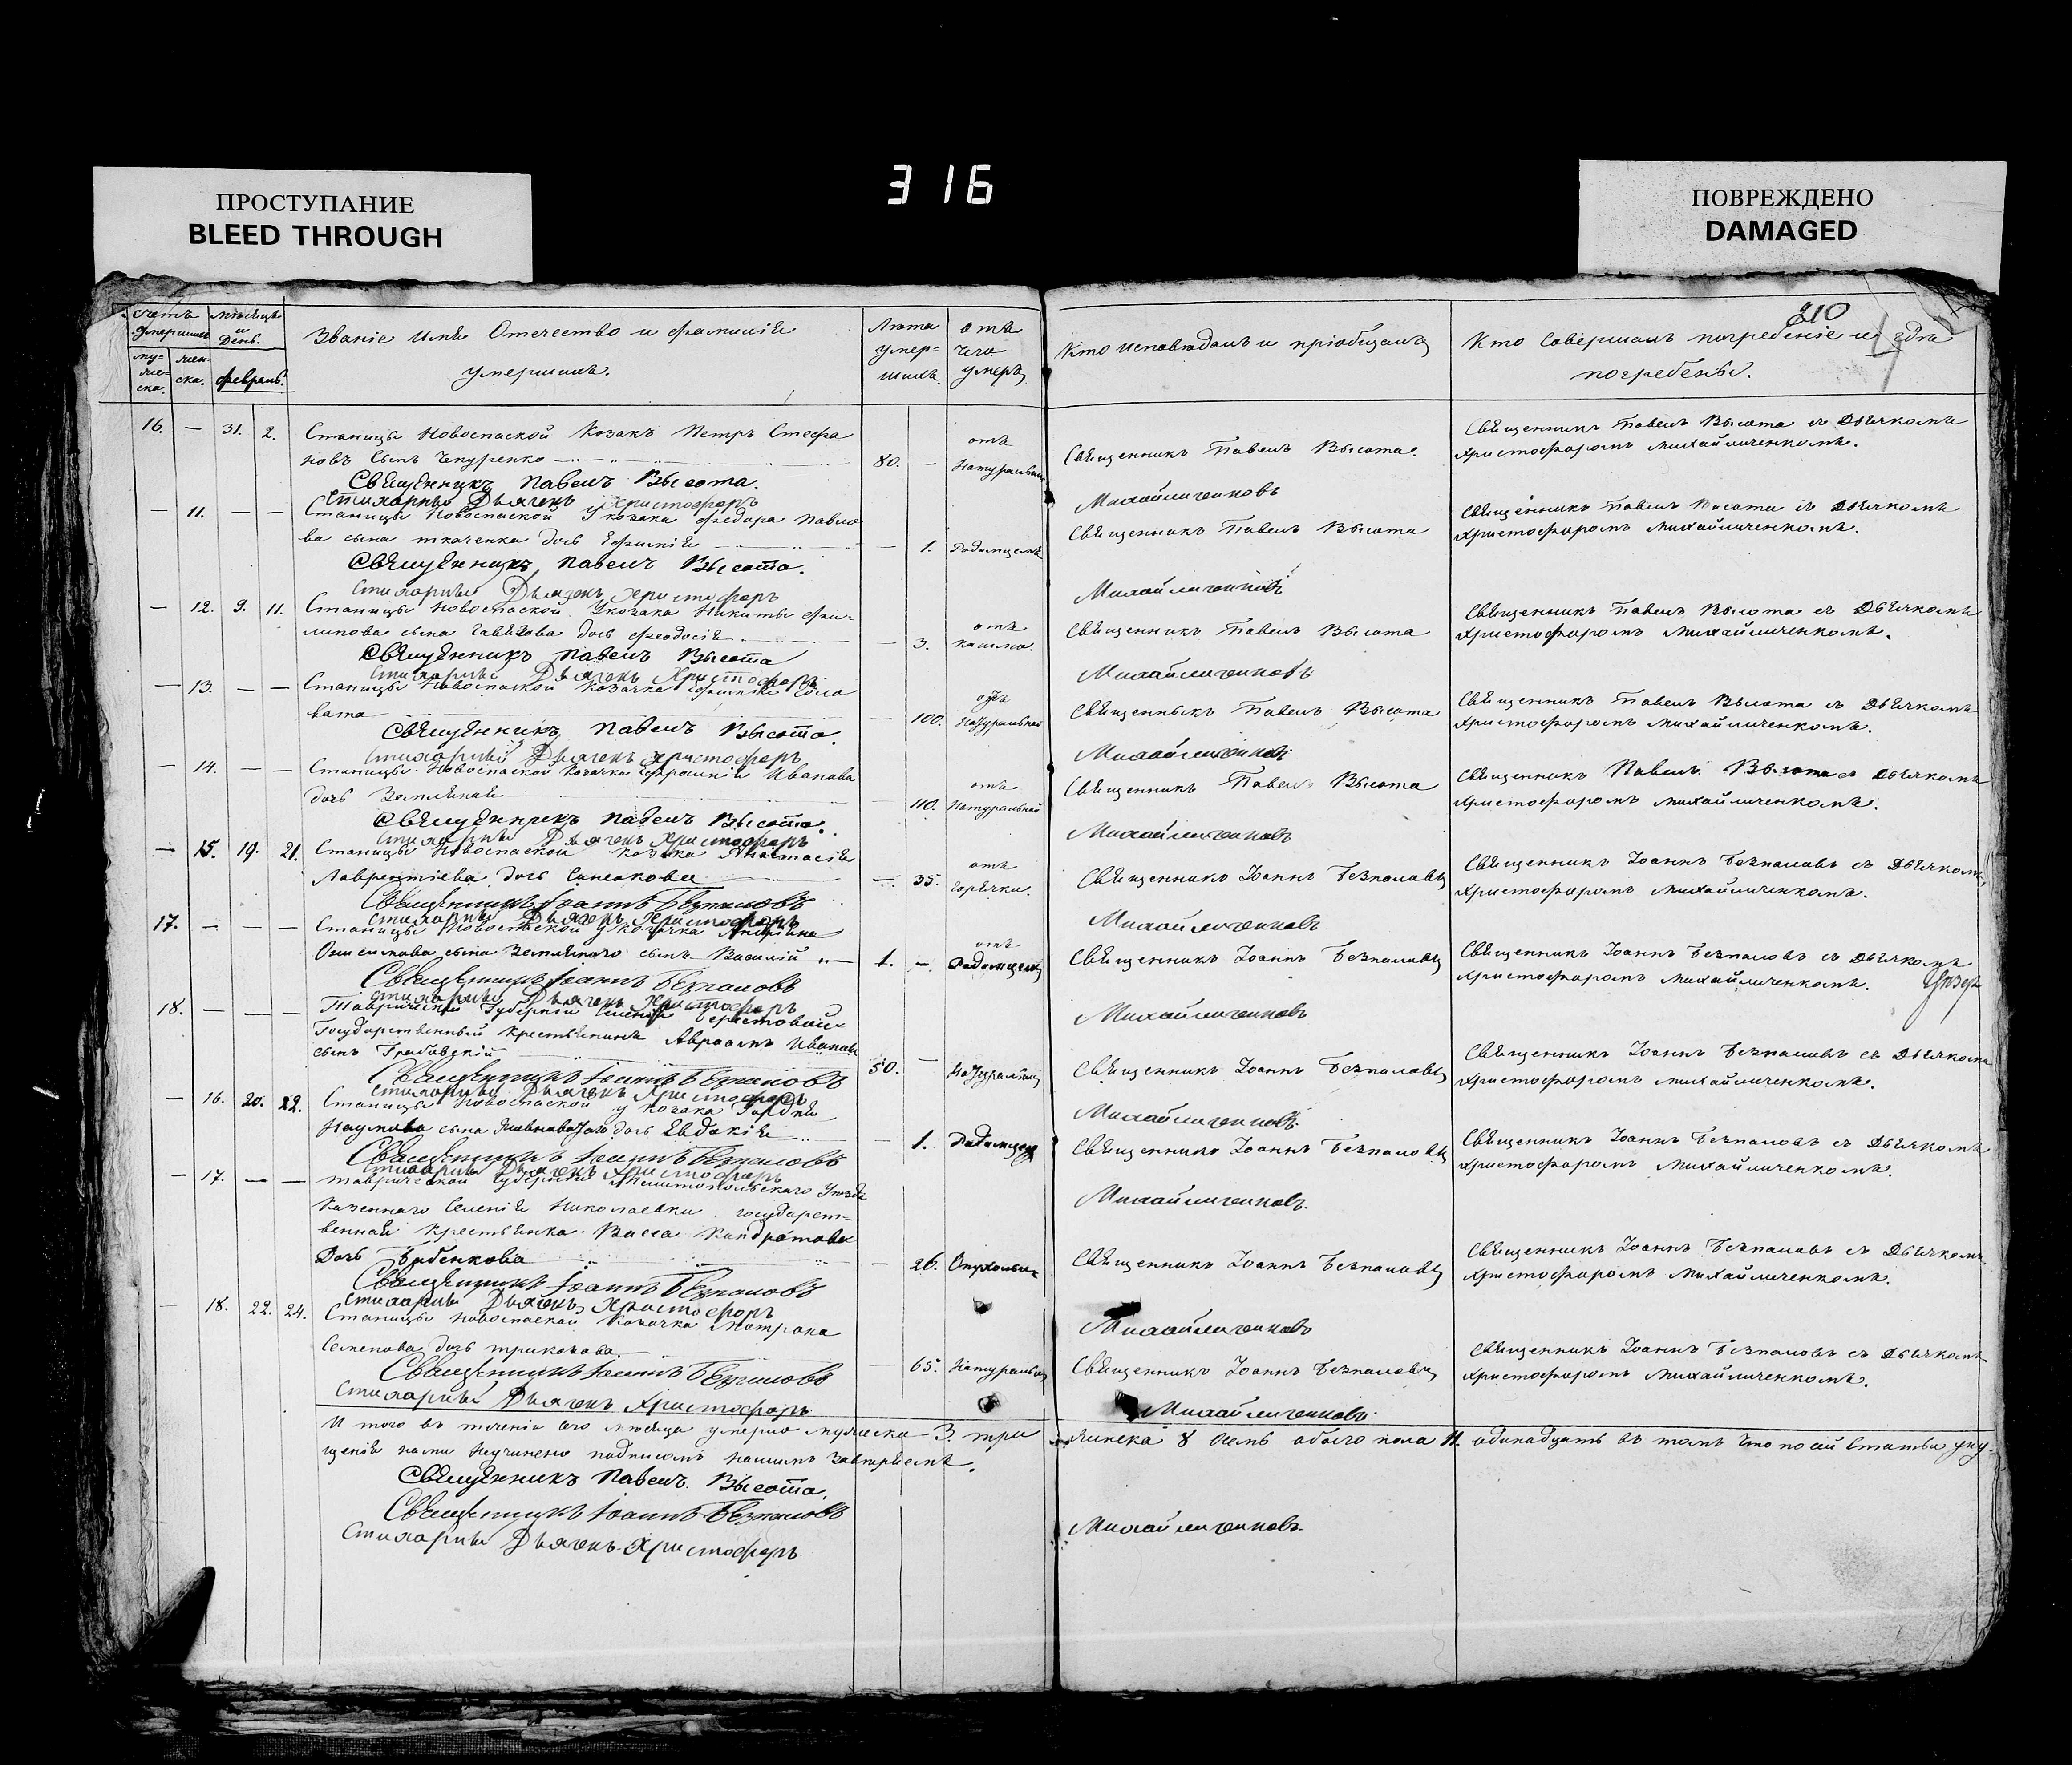 316
ПРОСТУПАНИЕ
BLEED THROUGH
ПОВРЕЖДЕНО
DAMAGED
210
Счетъ умершихъ
муже-ска.
жен-ска.
Мѣсяцъ и день.
февраль.
Званіе имя Отчество и фамилія
умершихъ.
Лѣта умер-шихъ.
отъ чего умеръ
Кто исповѣдалъ и пріобщалъ
Кто совершалъ погребеніе и гдѣ
погребены.
16. — 31. 2. Станицы Новоспаской Козакъ Петръ Стефа
новъ сынъ Чепуренко 80. — отъ Натуральной
Священникъ Павелъ Высота.
Священникъ Павелъ Высота съ Дьячкомъ
Христофоромъ Михайличенкомъ.
Священникъ Павелъ Высота.
Стихарный Дьячекъ Христофоръ Михайличенковъ
— 11. — — Станицы Новоспаской У козака Федора Павло
ва сына Ткаченка дочь Ефимія — 1. Родимцемъ
Священникъ Павелъ Высота
Священникъ Павелъ Высота съ Дьячкомъ
Христофоромъ Михайличенкомъ.
Священникъ Павелъ Высота.
Стихарный Дьячекъ Христофоръ Михайличенковъ
— 12. 9. 11. Станицы Новоспаской У козака Никиты Фи-
липова сына дочь Феодосія — 3. отъ кашлю.
Священникъ Павелъ Высота
Священникъ Павелъ Высота съ Дьячкомъ
Христофоромъ Михайличенкомъ.
Священникъ Павелъ Высота
Стихарный Дьячекъ Христофоръ Михайличенковъ
— 13. — — Станицы Новоспаской Козачка
вата — 100. отъ Натуральной
Священникъ Павелъ Высота
Священникъ Павелъ Высота съ Дьячкомъ
Христофоромъ Михайличенкомъ.
Священникъ Павелъ Высота.
Стихарный Дьячекъ Христофоръ Михайличенковъ
— 14. — — Станицы Новоспаской Козачка Иванова
дочь Земляная 110. отъ Натуральной
Священникъ Павелъ Высота
Священникъ Павелъ Высота съ Дьячкомъ
Христофоромъ Михайличенкомъ.
Священникъ Павелъ Высота.
Стихарный Дьячекъ Христофоръ Михайличенковъ
— 15. 19. 21. Станицы Новоспаской Козачка Анастасія
Лаврентіева дочь — 35. отъ горячки.
Священникъ Іоаннъ Безпаловъ
Священникъ Іоаннъ Безпаловъ съ Дьячкомъ
Христофоромъ Михайличенкомъ.
Священникъ Іоаннъ Безпаловъ
Стихарный Дьячекъ Христофоръ Михайличенковъ
17. — — — Станицы Новоспаской у козачка
сына Земляного сынъ Василій 1. — отъ Родимцемъ
Священникъ Іоаннъ Безпаловъ
Священникъ Іоаннъ Безпаловъ съ Дьячкомъ
Христофоромъ Михайличенкомъ.
Священникъ Іоаннъ Безпаловъ
Стихарный Дьячекъ Христофоръ Михайличенковъ
18. — — — Таврической Губерніи Селенія Берестовой
Государственный крестьянинъ Авраамъ Ивановъ
сынъ Грабовскій 50. — Натуральной
Священникъ Іоаннъ Безпаловъ
Священникъ Іоаннъ Безпаловъ съ Дьячкомъ
Христофоромъ Михайличенкомъ.
Священникъ Іоаннъ Безпаловъ
Стихарный Дьячекъ Христофоръ Михайличенковъ.
— 16. 20. 22. Станицы Новоспаской у Козака Гордѣя
Наумова сына дочь Евдокія — 1. Родимцемъ
Священникъ Іоаннъ Безпаловъ
Священникъ Іоаннъ Безпаловъ съ Дьячкомъ
Христофоромъ Михайличенкомъ.
Священникъ Іоаннъ Безпаловъ
Стихарный Дьячекъ Христофоръ Михайличенковъ.
— 17. — — Таврической Губерніи Мелитопольскаго Уезда
Казеннаго Селенія Николаевки государст-
венная крестьянка Васса Кондратова
дочь Бубенкова — 26. Опухолью
Священникъ Іоаннъ Безпаловъ
Священникъ Іоаннъ Безпаловъ съ Дьячкомъ
Христофоромъ Михайличенкомъ.
Священникъ Іоаннъ Безпаловъ
Стихарный Дьячекъ Христофоръ Михайличенковъ
— 18. 22. 24. Станицы Новоспаской Козачка Матрона
Семенова дочь 65. Натуральной
Священникъ Іоаннъ Безпаловъ
Священникъ Іоаннъ Безпаловъ съ Дьячкомъ
Христофоромъ Михайличенкомъ.
Священникъ Іоаннъ Безпаловъ
Стихарный Дьячекъ Христофоръ Михайличенковъ
И того въ теченіи сего месяца умерло мужеска 3. три женска 8 осмь обоего пола 11. одинадцать въ томъ что по сей статьи упу-
щенія нами неучинено подписомъ нашимъ завѣряемъ.
Священникъ Павелъ Высота.
Священникъ Іоаннъ Безпаловъ
Стихарный Дьячекъ Христофоръ Михайличенковъ